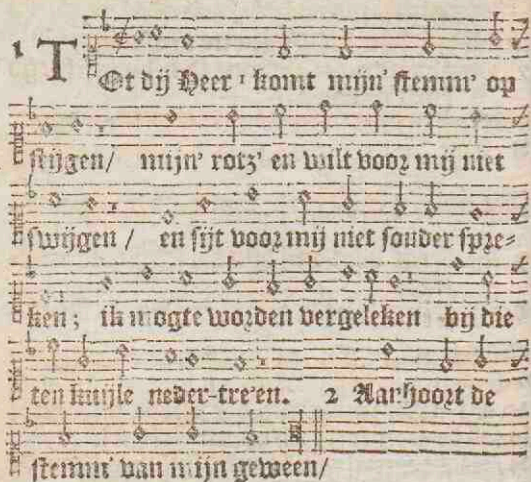 1 TOt dij Heer, komt mijn' stemm' op
stijgen/ mijn' rotz' en wilt voor mij niet
swijgen / en sijt voor mij niet sonder spre-
ken; ik mogte worden vergeleken bij die
ten kuijle neder-tre'en. 2 Aanhoort de
stemm' van mijn geween/